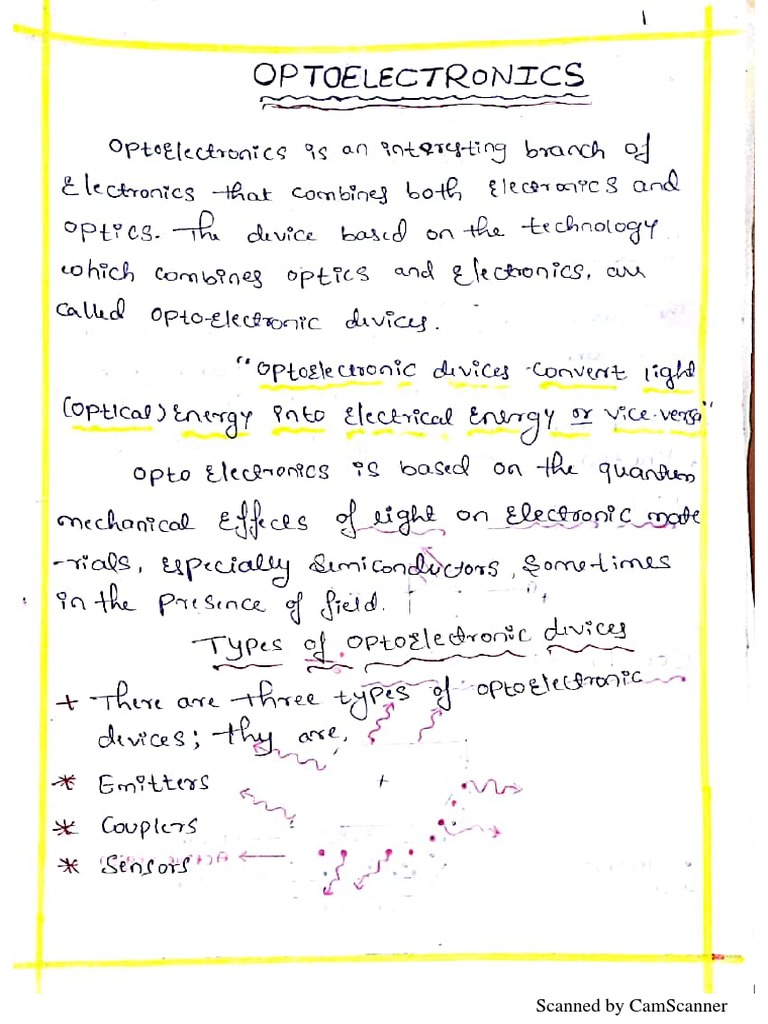 1
OPTOELECTRONICS
Optoelectronics is an interesting branch of
Electronics that combines both Elecronics and
optics. The device based on the technology
which combines optics and Electronics, are
called opto-electronic devices.
"Optoelectronic devices convert light
(optical) Energy into Electrical Energy or vice-versa"
Opto Electronics is based on the quantum
mechanical Effeces of light on Electronic mate
-rials, Especially Semiconductors, Sometimes
in the presence of field.
Types of optoelectronic devices
+ There are three types of optoelectronic
devices; they are,
* Emitters
* Couplers
* Sensors
Scanned by CamScanner